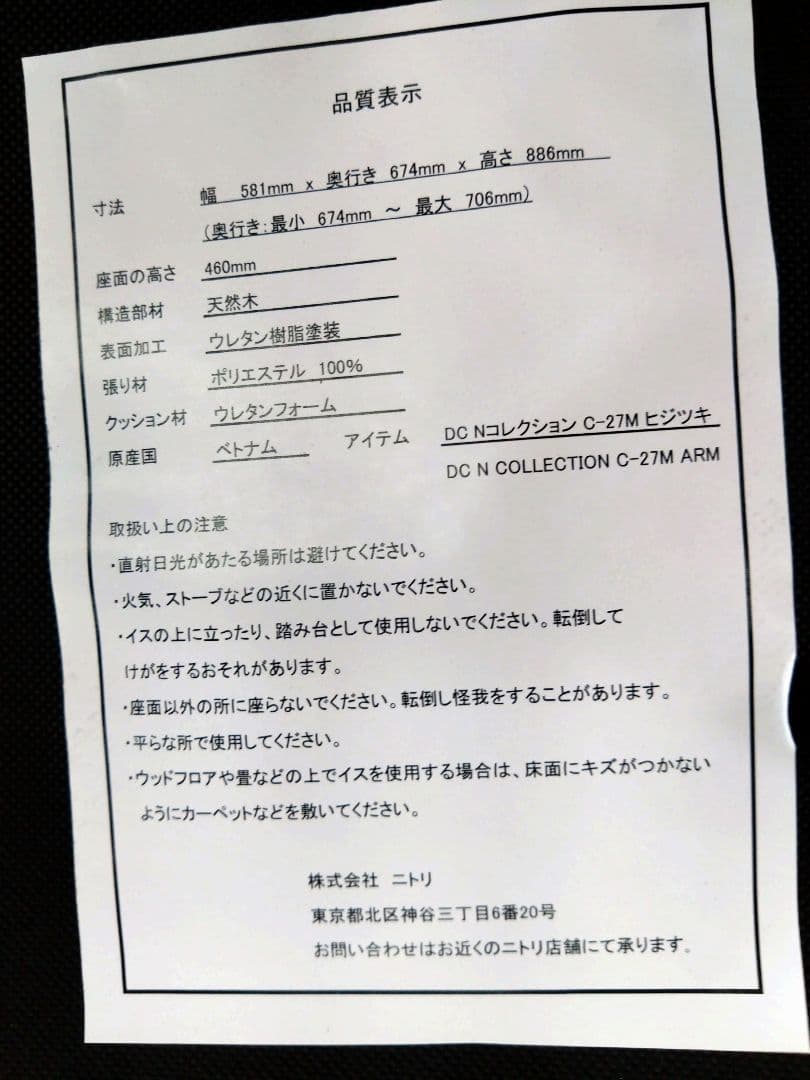 品質表示
寸法 幅 581mm x 奥行き 674mm x 高さ 886mm
(奥行き:最小 674mm ～ 最大 706mm)
座面の高さ 460mm
構造部材 天然木
表面加工 ウレタン樹脂塗装
張り材 ポリエステル 100%
クッション材 ウレタンフォーム
原産国 ベトナム アイテム DC Nコレクション C-27M ヒジツキ
DC N COLLECTION C-27M ARM
取扱い上の注意
・直射日光があたる場所は避けてください。
・火気、ストーブなどの近くに置かないでください。
・イスの上に立ったり、踏み台として使用しないでください。転倒して
けがをするおそれがあります。
・座面以外の所に座らないでください。転倒し怪我をすることがあります。
・平らな所で使用してください。
・ウッドフロアや畳などの上でイスを使用する場合は、床面にキズがつかない
ようにカーペットなどを敷いてください。
株式会社 ニトリ
東京都北区神谷三丁目6番20号
お問い合わせはお近くのニトリ店舗にて承ります。